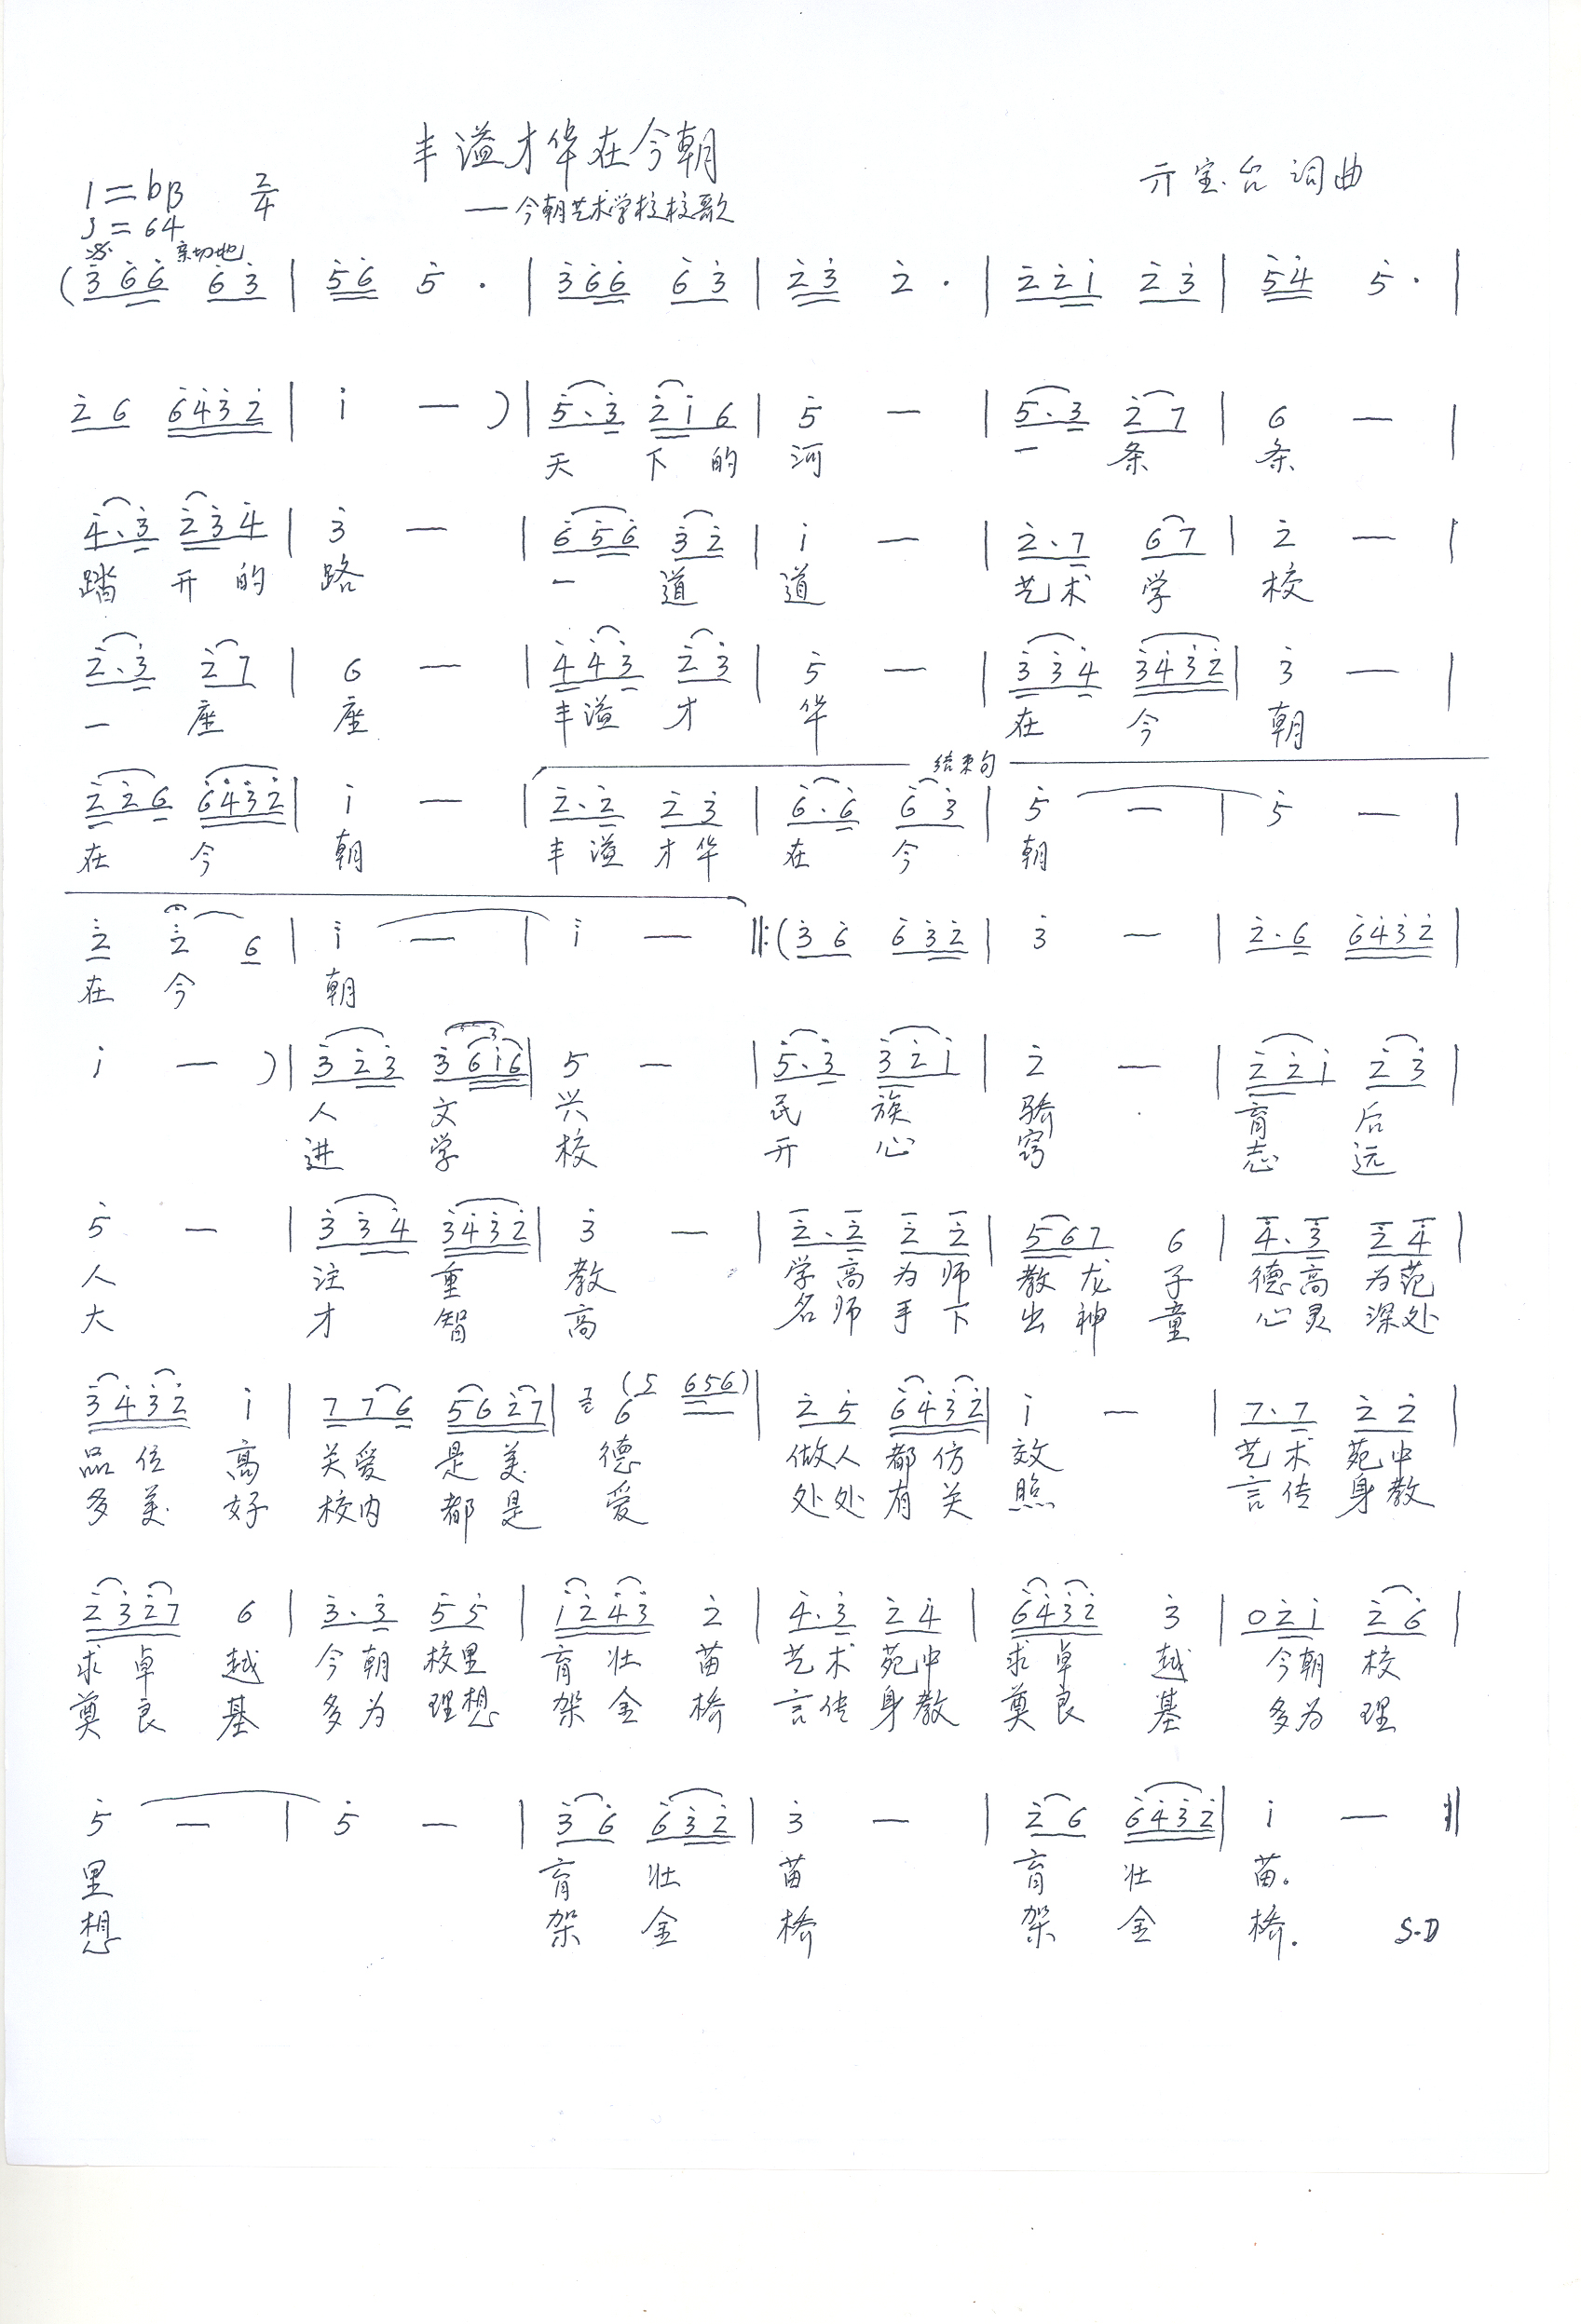 丰溢才华在今朝
——今朝艺术学校校歌
亓宝台 词曲
1=bB 2/4
♩=64
亲切地
(3̇6̇6̇ 6̇3̇ | 5̇6̇ 5̇ · | 3̇6̇6̇ 6̇3̇ | 2̇3̇ 2̇ · | 2̇2̇1̇ 2̇3̇ | 5̇4̇ 5̇ · |
2̇6 6̇4̇3̇2̇ | 1̇ — ) | 5̇·3̇ 2̇1̇6 | 5̇ — | 5̇·3̇ 2̇7 | 6 — |
天 下 的 河 一 条 条
4̇·3̇ 2̇3̇4̇ | 3̇ — | 6̇5̇6̇ 3̇2̇ | 1̇ — | 2̇·7 67 | 2̇ — |
踏 开 的 路 一 道 道 艺术 学 校
2̇·3̇ 2̇7 | 6 — | 4̇4̇3̇ 2̇3̇ | 5̇ — | 3̇3̇4̇ 3̇4̇3̇2̇ | 3̇ — |
一 座 座 丰溢 才 华 在 今 朝
结束句
2̇2̇6 6̇4̇3̇2̇ | 1̇ — | 2̇·2̇ 2̇3̇ | 6̇·6̇ 6̇3̇ | 5̇ — | 5̇ — |
在 今 朝 丰溢 才华 在 今 朝
2̇ 2̇ 6 | 1̇ — | 1̇ — ‖:(3̇6̇ 6̇3̇2̇ | 3̇ — | 2̇·6 6̇4̇3̇2̇ |
在 今 朝
1̇ — ) | 3̇2̇3̇ 3̇61̇6 | 5 — | 5̇·3̇ 3̇2̇1̇ | 2̇ — | 2̇2̇1̇ 2̇3̇ |
人 文 兴 民 族 骄 育 后
进 学 校 开 心 窍 志 远
5̇ — | 3̇3̇4̇ 3̇4̇3̇2̇ | 3̇ — | 2̇·2̇ 2̇2̇ | 567 6 | 4̇·3̇ 2̇4̇ |
人 注 重 教 学高 为师 教龙 子 德高 为范
大 才 智 高 名师 手下 出神 童 心灵 深处
3̇4̇3̇2̇ 1̇ | 776 562̇7 | 6 (5 656) | 2̇5̇ 6̇4̇3̇2̇ | 1̇ — | 7·7 2̇2̇ |
品位 高 关爱 是美 德 做人 都仿 效 艺术 苑中
多美 好 校内 都是 爱 处处 有关 照 言传 身教
2̇3̇2̇7 6 | 3̇·3̇ 5̇5̇ | 1̇2̇4̇3̇ 2̇ | 4̇·3̇ 2̇4̇ | 6̇4̇3̇2̇ 3̇ | 02̇1̇ 2̇6̇ |
求卓 越 今朝 校里 育壮 苗 艺术 苑中 求卓 越 今朝 校
奠良 基 多为 理想 架金 桥 言传 身教 奠良 基 多为 理
5̇ — | 5̇ — | 3̇6̇ 6̇3̇2̇ | 3̇ — | 2̇6 6̇4̇3̇2̇ | 1̇ — :‖
里 育 壮 苗 育 壮 苗。
想 架 金 桥 架 金 桥. S.D